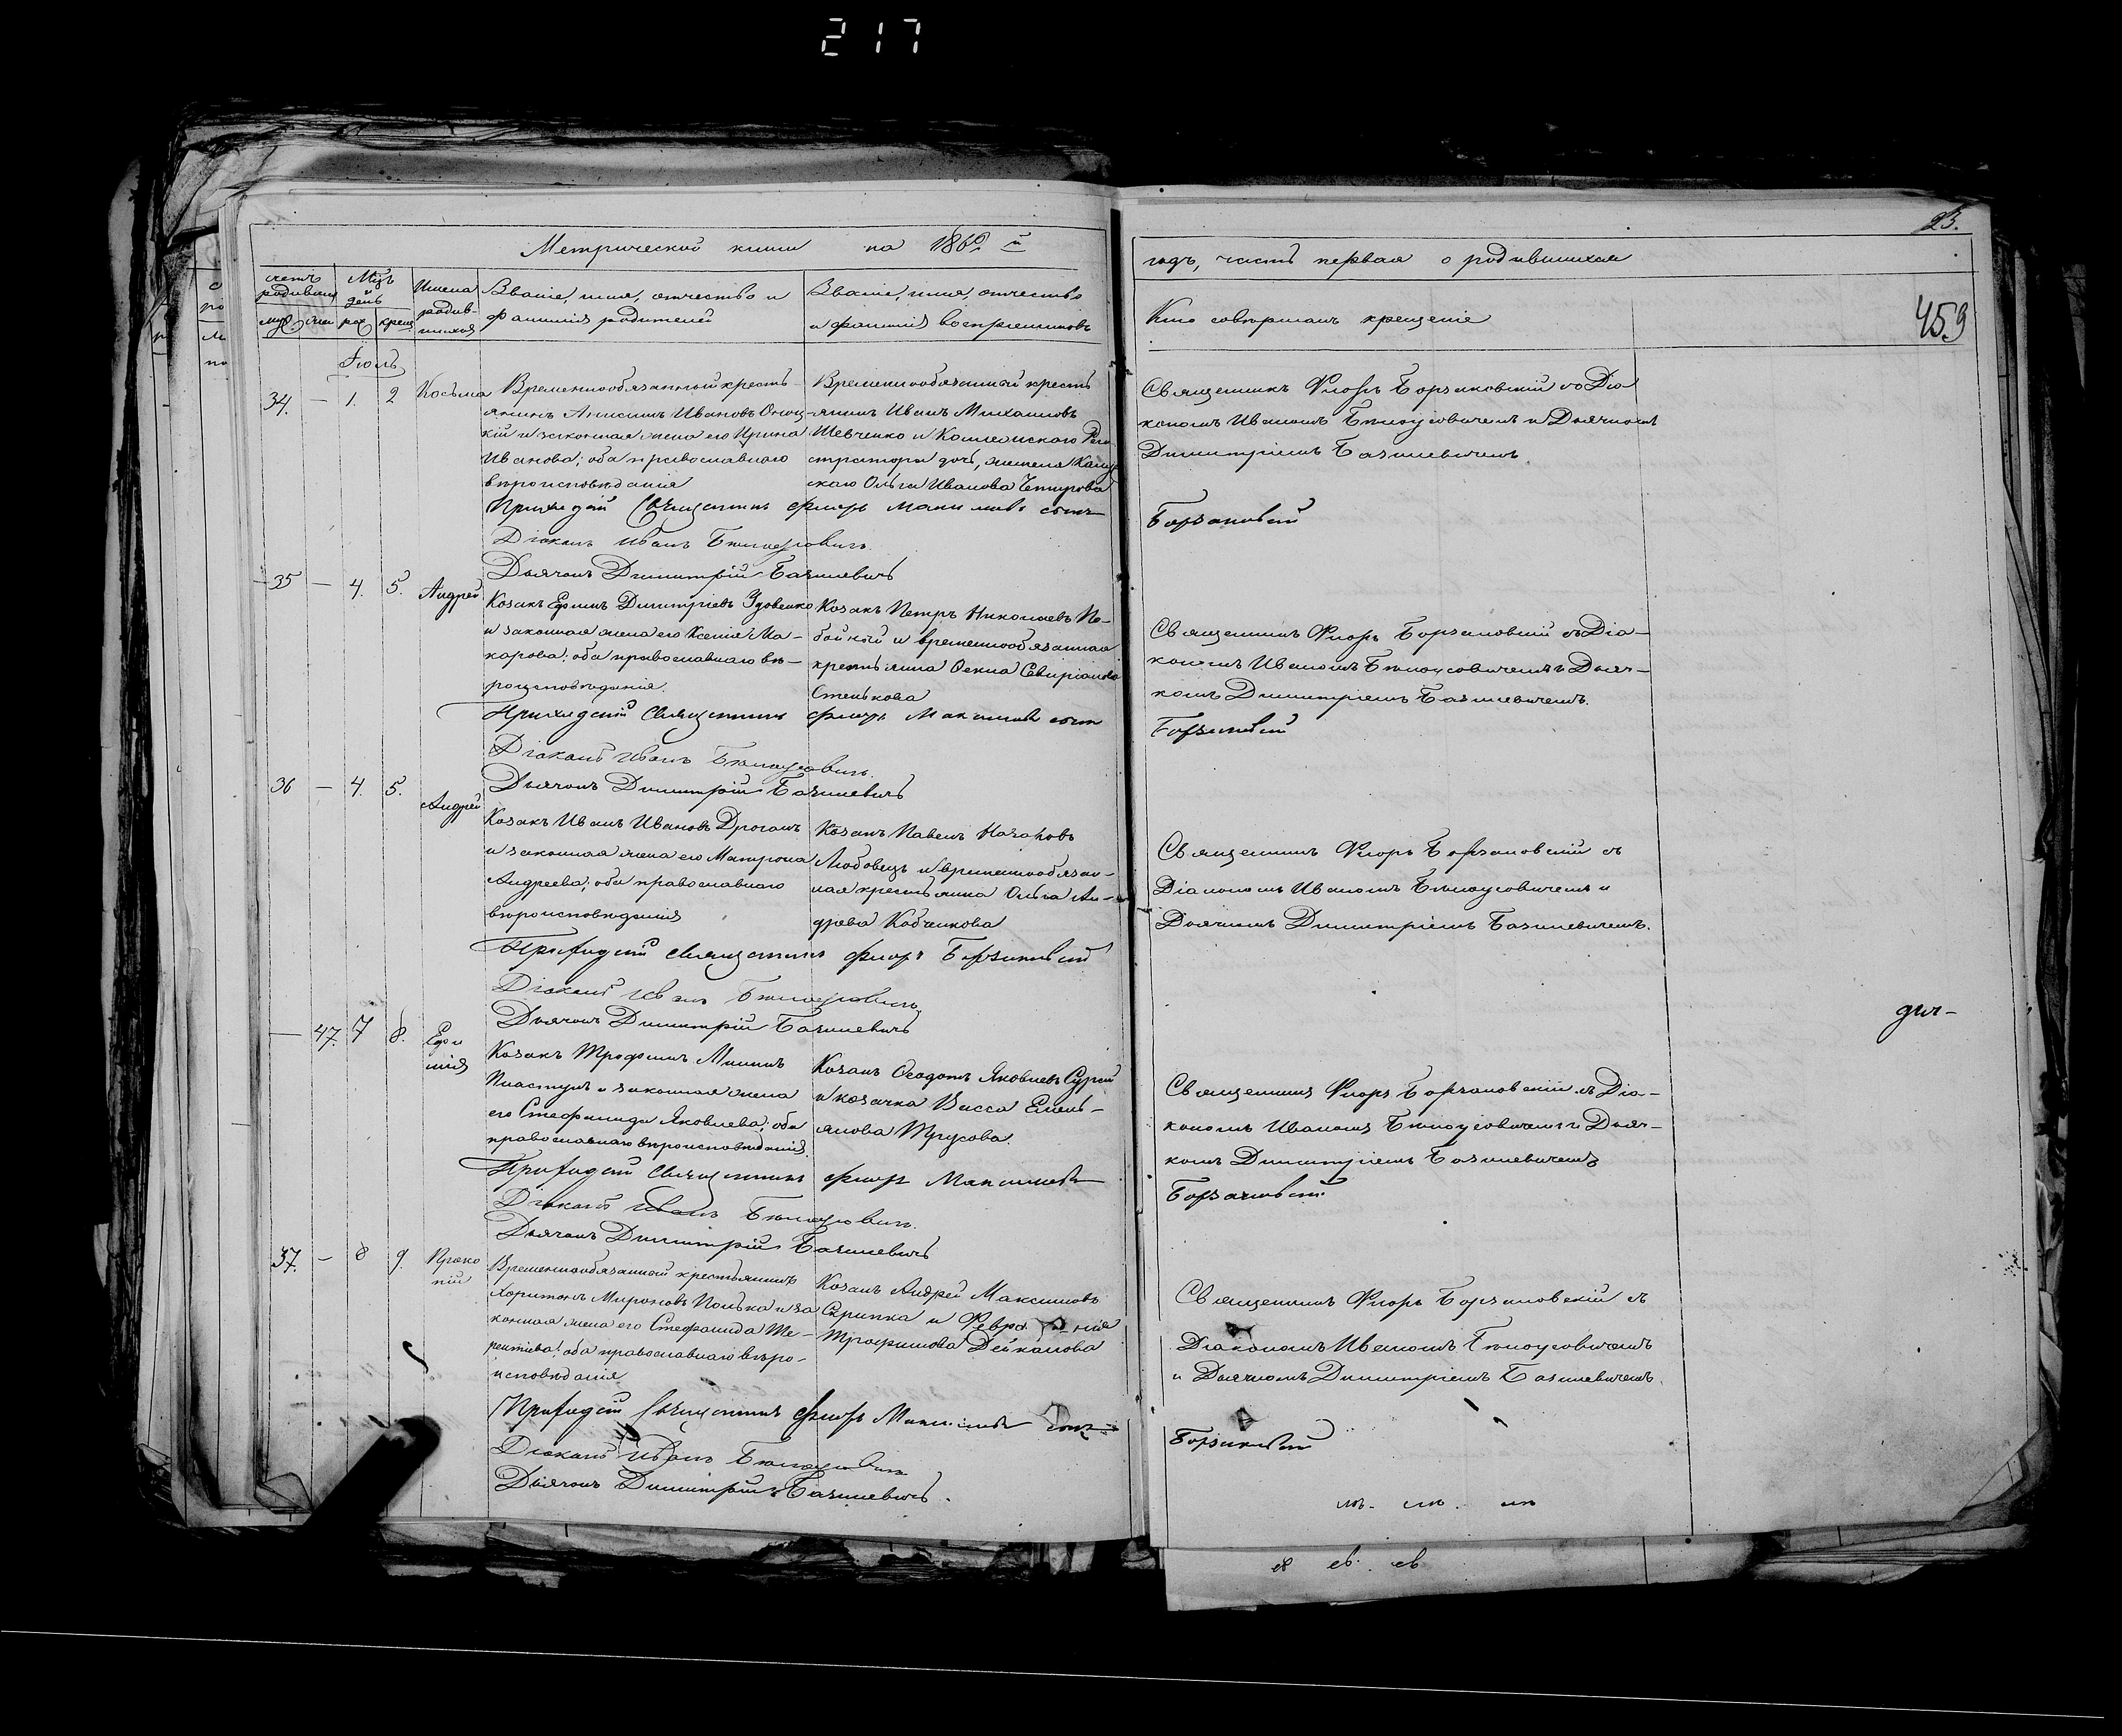 217
23.
459
Метрической книги на 186 й
годъ, часть первая о родившихся
Счетъ родивших
Мѣц. день
муж. жен рож крещ
Имена родив-шихся
Званіе, имя, отчество и
фамилія родителей
Званіе, имя, отчество
и фамилія воспріемниковъ
Кто совершалъ крещеніе
Іюль
34. — 1. 2 Косьма
Временнообязанный кресть-
янинъ Анисимъ Ивановъ
кій и законная жена его Ирина
Иванова; оба православнаго
вѣроисповѣданія
Временнообязанный кресть
янинъ Иванъ Михаиловъ
Шевченко и Коллежскаго Реги
стратора дочь,
Ольга Иванова
Священникъ Флоръ Борзаковскій съ Діа
кономъ Иваномъ Бѣлоусовичемъ и Дьячкомъ
Димитріемъ Базилевичемъ
Приход­скій Священникъ Флоръ Максимовъ сынъ
Борзаковскій
Діаконъ Иванъ Бѣлоусовичъ.
Дьячокъ Димитрій Базилевичъ
35 — 4. 5. Андрей
Козакъ Ефимъ Димитріевъ Удовенко
и законная жена его Ксенія Ма-
карова; оба православнаго вѣ-
роисповѣданія.
Козакъ Петръ Николаевъ По-
бойный и временнообязанная
крестьянка Севиріанова
Стенькова
Священникъ Флоръ Борзаковскій съ Діа-
кономъ Иваномъ Бѣлоусовичемъ и Дьяч-
комъ Димитріемъ Базилевичемъ.
Приходскій Священникъ Флоръ Максимовъ сынъ
Борзаковскій
Діаконъ Иванъ Бѣлоусовичъ.
Дьячокъ Димитрій Базилевичъ
36 — 4. 5. Андрей
Козакъ Иванъ Ивановъ Дроганъ
и законная жена его Матрона
Андреева; оба православнаго
вѣроисповѣданія
Козакъ Павелъ Назаровъ
Любовецъ и временнообязан-
ная крестьянка Ольга Ан-
дреева Кобченкова
Священникъ Флоръ Борзаковскій съ
Діакономъ Иваномъ Бѣлоусовичемъ и
Дьячкомъ Димитріемъ Базилевичемъ.
Приходскій Священникъ Флоръ Борзаковскій
Діаконъ Иванъ Бѣлоусовичъ.
Дьячокъ Димитрій Базилевичъ
— 47. 7 8. Ефи
мія
Козакъ Трофимъ Мининъ
Пластунъ и законная жена
его Стефанида Яковлева; оба
православнаго вѣроисповѣданія.
Козакъ Ѳеодотъ Яковлевъ Сурай
и козачка Васса Емель-
янова Трусова.
Священникъ Флоръ Борзаковскій съ Діа-
кономъ Иваномъ Бѣлоусовичемъ и Дьяч-
комъ Димитріемъ Базилевичемъ
Приходскій Священникъ Флоръ Максимовъ
Борзаковскій
Діаконъ Иванъ Бѣлоусовичъ.
Дьячокъ Димитрій Базилевичъ
37. — 8 9. Проко
пій
Временнообязанный крестьянинъ
Харитонъ Мироновъ Полька и за
конная жена его Стефанида Те-
рентіева; оба православнаго вѣро-
исповѣданія
Козакъ Андрей Максимовъ
Скрипка и Февронія
Трофимова Дейкалова
Священникъ Флоръ Борзаковскій съ
Діакономъ Иваномъ Бѣлоусовичемъ
и Дьячкомъ Димитріемъ Базилевичемъ.
Приходскій Священникъ Флоръ Максимовъ сынъ
Борзаковскій
Діаконъ Иванъ Бѣлоусовичъ
Дьячокъ Димитрій Базилевичъ.